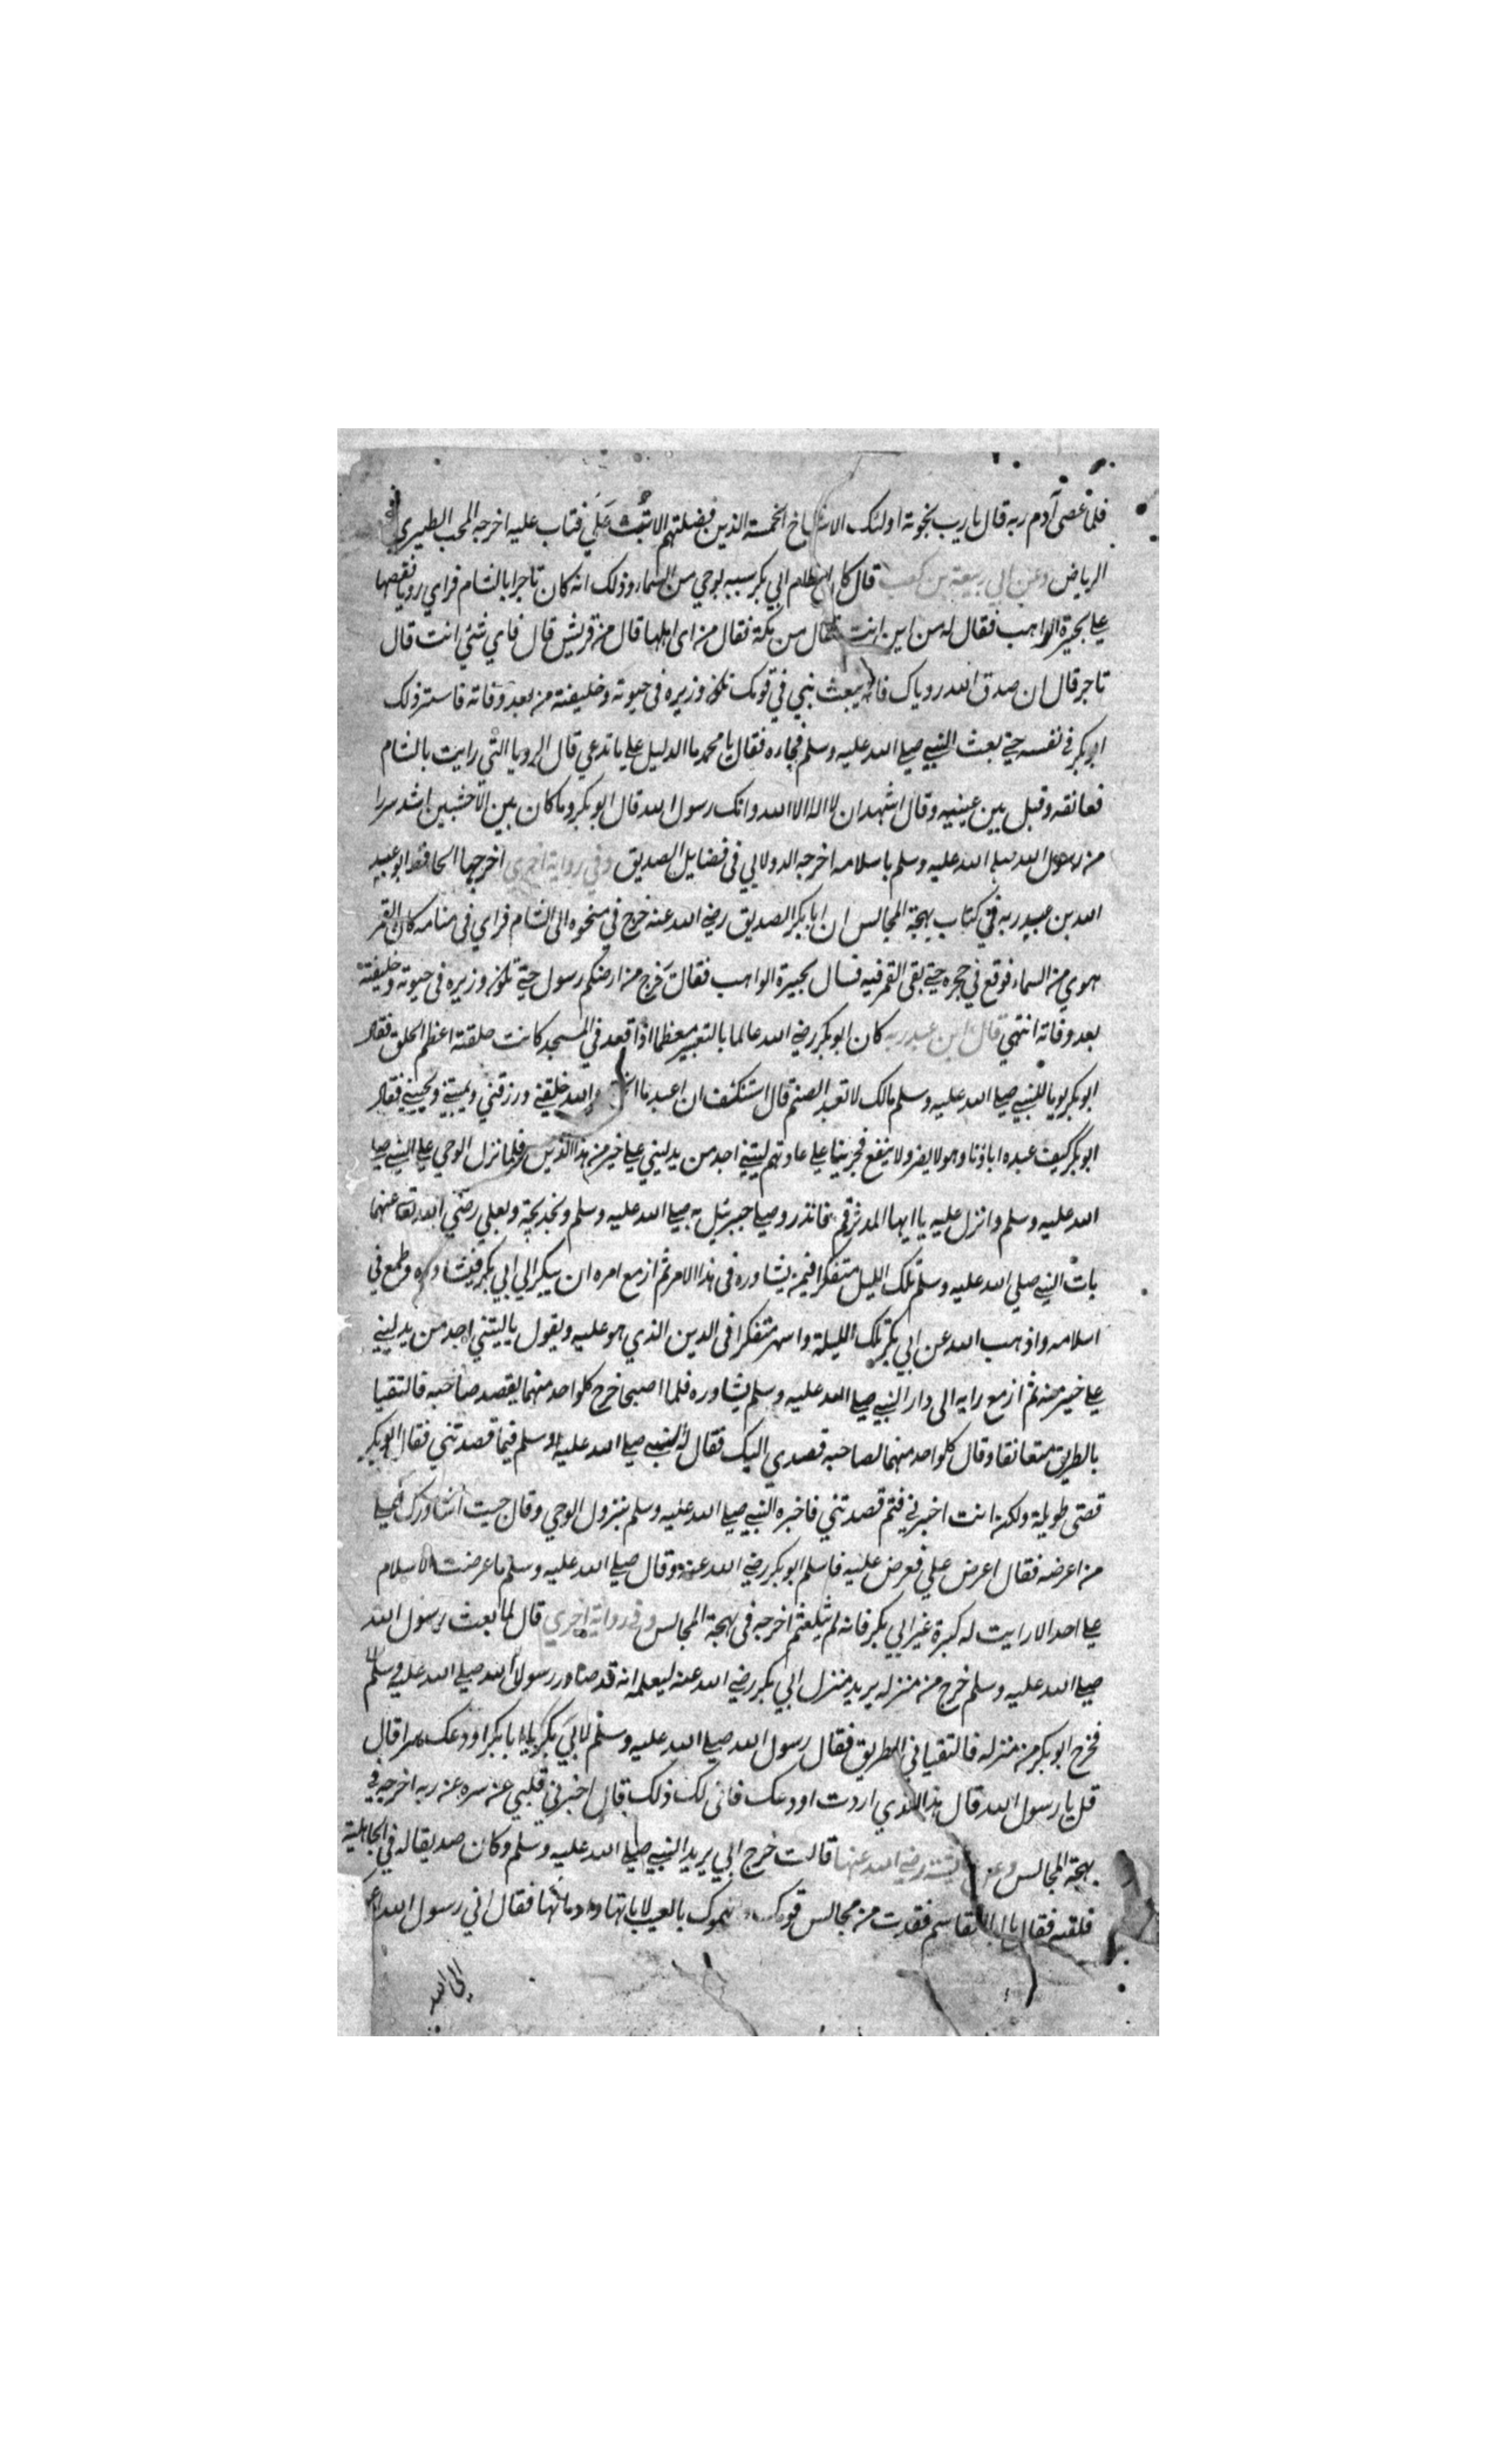 فلما عصى آدم ربه قال يا رب بحرمة اولئك الاشياخ الخمسة الذين فضلتهم الا تبت علي فتاب عليه اخرجه المحب الطبري في
الرياض وعن ابي ربيعة بن كعب قال كان اسلام ابي بكر سببه بوحي من السماء وذلك انه كان تاجرا بالشام فراي رويا فقصها
علي بحيرة الراهب فقال له من اين انت فقال من مكة فقال من اى اهلها قال من قريش قال فاي شئي انت قال
تاجر قال ان صدق الله روياك فانه يبعث نبي في قومك تكون وزيره فى حيوته وخليفته من بعد وفاته فاستر ذلك
ابو بكر في نفسه حتي بعث النبي صلي الله عليه وسلم فجاره فقال يا محمد ما الدليل علي ما تدعي قال الرويا التي رايت بالشام
فعانقه وقبل بين عينيه وقال اشهد ان لا اله الا الله وانك رسول الله قال ابو بكر وما كان بين الاخشبين اشد سررا
من رسول الله صلي الله عليه وسلم باسلامه اخرجه الدولابي فى فضايل الصديق وفي رواية اخرى اخرجها الحافظ ابو عبيد
الله بن عبد ربه في كتاب بهجة المجالس ان ابا بكر الصديق رضي الله عنه خرج في منحوه الى الشام فراي في منامه كان القمر
هوي من السماء فوقع في حجره حتي بقى القمر فيه فسال بحيرة الراهب فقال خرج من ارضكم رسول حتي تكون وزيره فى حيوته وخليفته
بعد وفاته انتهي قال ابن عبد ربه كان ابو بكر رضي الله عالما بالتعبير معظما اذا قعد في المسجد كانت حلقته اعظم الحلق فقال
ابو بكر يوما للنبي صلي الله عليه وسلم مالك لا تعبد الصنم قال استنكف ان اعبد ما والله خلقني ورزقني ويميتني ويحييني فقال
ابو بكر كيف عبده اباؤنا وهو لا يضر ولا ينفع فجرينا علي عادتهم ليتني اجد من يدلني علي خير من هذا الدين فلما نزل الوحي علي النبي صلي
الله عليه وسلم وانزل عليه يا ايها المدثر قم فانذر وصلي جبرئيل به صلي الله عليه وسلم وبخديجة وبعلي رضي الله تعا عنهما
بات النبي صلي الله عليه وسلم تلك الليل متفكرا فيمن يشاوره فى هذا الامر ثم ازمع امره ان يبكر الي ابي بكر فيشاوره وطمع في
اسلامه واذهب الله عن ابي بكر تلك الليلة واسهر متفكرا فى الدين الذي هو عليه ويقول يا ليتني اجد من يدلني
علي خير منه ثم ازمع رايه الى دار النبي صلي الله عليه وسلم يشاوره فلما اصبحا خرج كلواحد منهما يقصد صاحبه فالتقيا
بالطريق متعانقا وقال كلواحد منهما لصاحبه قصدي اليك فقال له النبي صلي الله عليه وسلم فيما قصدتني فقال ابو بكر
قصتى طويلة ولكن انت اخبرني فبم قصدتني فاخبره النبي صلي الله عليه وسلم بنزول الوحي وقال جيت اشاورك علي
من اعرضه فقال اعرض علي فعرض عليه فاسلم ابو بكر رضي الله عنه وقال صلي الله عليه وسلم ما عرضت الاسلام
علي احد الا رايت له كبرة غير ابي بكر فانه لم يتلعثم اخرجه فى بهجة المجالس وفي رواية اخري قال لما بعث رسول الله
صلي الله عليه وسلم خرج من منزله يريد منزل ابي بكر رضي الله عنه ليعلمه انه قد صار رسولا لله صلي الله عليه وسلم
فخرج ابو بكر من منزله فالتقيا في الطريق فقال رسول الله صلي الله عليه وسلم لابي بكر يا ابا بكر اودعك سرا قال
قل يا رسول الله قال هذا الذي اردت اودعك فانى لك ذلك قال اخبرني قلبي عن سره عن ربه اخرجه في
بهجة المجالس وعن عايشة رضي الله عنها قالت خرج ابي يريد النبي صلي الله عليه وسلم وكان صديقا له في الجاهلية
فلقيه فقال يا ابا القاسم فقدت من مجالس قومك بالعيب لابائها وامهاتها فقال اني رسول الله ادعو
الى الله